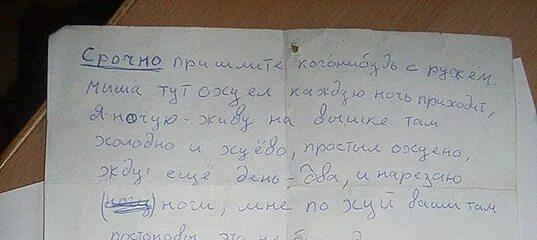 Срочно пришлите когонибудь с ружём.
миша тут охуел каждую ночь приходит,
Я ночую - живу на вышке там
холодно и хуёво, простыл охуено,
жду ещё день-два, и нарезаю
ноги, мне по хуй ваши там
это не